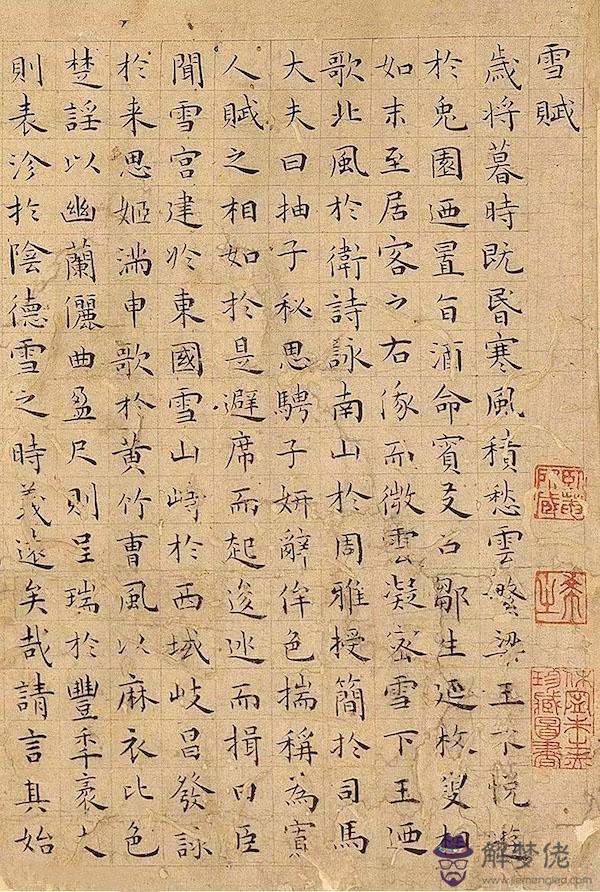 雪賦
歲將暮時既昏寒風積愁雲繁梁王不悅遊
於兔園迺置旨酒命賓友召鄒生延枚叟相
如末至居客之右俄而微雲凝密雪下王迺
歌北風於衛詩詠南山於周雅授簡於司馬
大夫曰抽子秘思騁子妍辭侔色揣稱為寡
人賦之相如於是避席而起逡巡而揖曰臣
聞雪宮建於東國雪山峙於西域岐昌發詠
於来思姬滿申歌於黃竹曹風以麻衣比色
楚謠以幽蘭儷曲盈尺則呈瑞於豐年袤丈
則表沴於陰德雪之時義遠矣哉請言其始
珍藏圖書
解梦佬